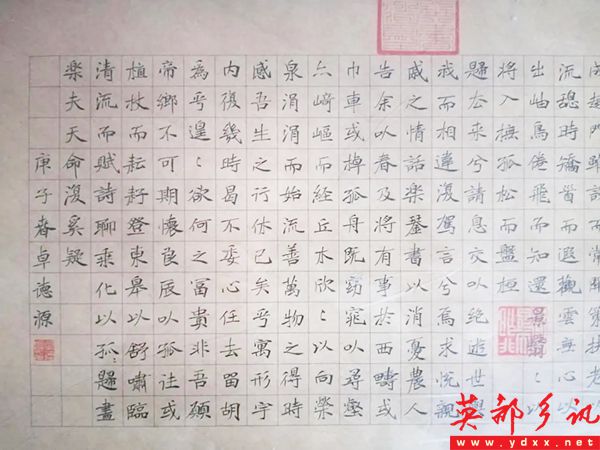 流憩時矯首而遐觀雲無心以
出岫鳥倦飛而知還景翳〻以
將入撫孤松而盤桓
歸去来兮請息交以絶遊世與
我而相違復駕言兮焉求悦親
戚之情話楽琴書以消憂農人
告余以春及将有事於西疇或
巾車或棹孤舟既窈窕以尋壑
亦崎嶇而経丘木欣〻以向榮
泉涓涓而始流善萬物之得時
感吾生之行休已矣乎寓形宇
内復幾時曷不委心任去留胡
為乎遑〻欲何之冨貴非吾願
帝鄉不可期懷良辰以孤往或
植杖而耘耔登東皋以舒嘯臨
清流而賦詩聊乗化以孤歸盡
楽夫天命復奚疑
庚子春卓德源
英都乡讯
www.ydxx.net